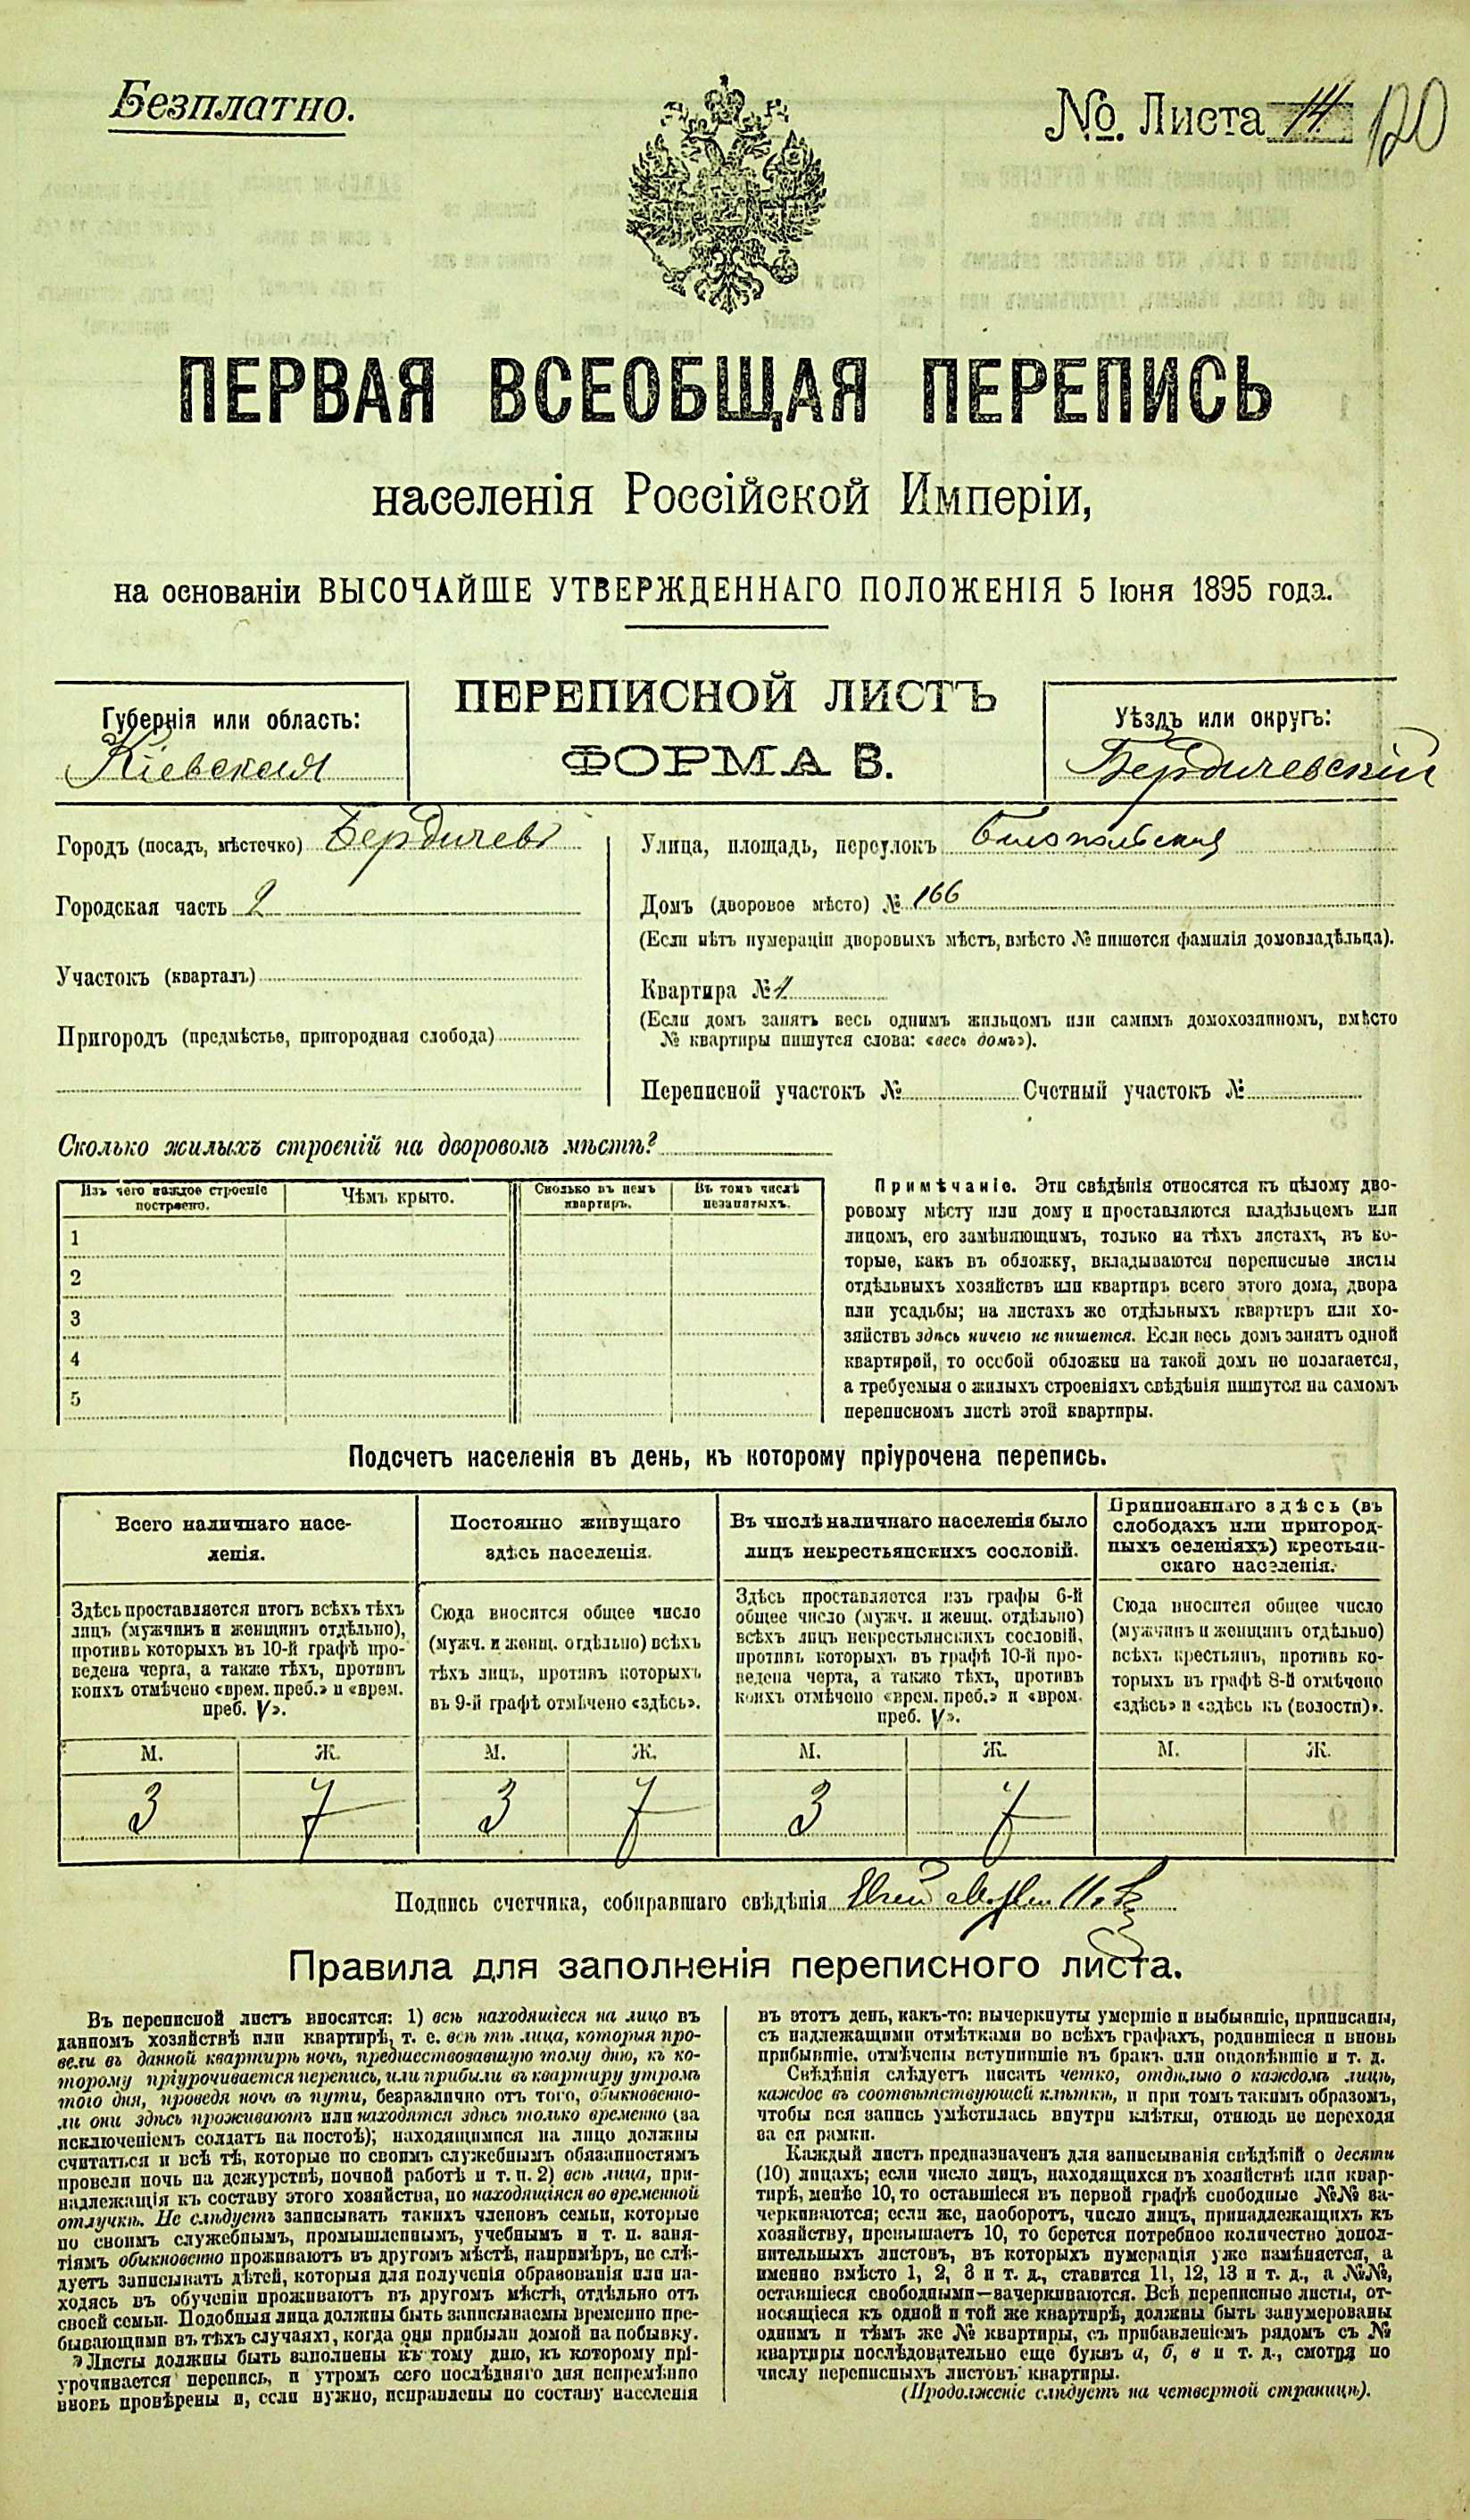 Безплатно.
№. Листа 14 120
ПЕРВАЯ ВСЕОБЩАЯ ПЕРЕПИСЬ
населенія Россійской Имперіи,
на основаніи ВЫСОЧАЙШЕ УТВЕРЖДЕННАГО ПОЛОЖЕНІЯ 5 Іюня 1895 года.
Губернія или область:
Кіевская
ПЕРЕПИСНОЙ ЛИСТЪ
ФОРМА В.
Уѣздъ или округъ:
Бердичевскій
Городъ (посадъ, мѣстечко) Бердичевъ
Городская часть 2
Участокъ (кварталъ)
Пригородъ (предмѣстье, пригородная слобода)
Улица, площадь, переулокъ
Домъ (дворовое мѣсто) № 166
(Если нѣтъ нумераціи дворовыхъ мѣстъ, вмѣсто № пишется фамилія домовладѣльца).
Квартира №
(Если домъ занятъ весь однимъ жильцомъ или самимъ домохозяиномъ, вмѣсто
№ квартиры пишутся слова: «весь домъ»).
Переписной участокъ № Счетный участокъ №
Сколько жилыхъ строеній на дворовомъ мѣстѣ?
Изъ чего каждое строеніе
построено.
Чѣмъ крыто.
Сколько въ немъ
квартиръ.
Въ томъ числѣ
незанятыхъ.
1
2
3
4
5
Примѣчаніе. Эти свѣдѣнія относятся къ цѣлому дво-
ровому мѣсту или дому и проставляются владѣльцемъ или
лицомъ, его замѣняющимъ, только на тѣхъ листахъ, въ ко-
торые, какъ въ обложку, вкладываются переписные листы
отдѣльныхъ хозяйствъ или квартиръ всего этого дома, двора
или усадьбы; на листахъ же отдѣльныхъ квартиръ или хо-
зяйствъ здѣсь ничего не пишется. Если весь домъ занятъ одной
квартирой, то особой обложки на такой домъ не полагается,
а требуемыя о жилыхъ строеніяхъ свѣдѣнія пишутся на самомъ
переписномъ листѣ этой квартиры.
Подсчетъ населенія въ день, къ которому пріурочена перепись.
Всего наличнаго насе-
ленія.
Здѣсь проставляется итогъ всѣхъ тѣхъ
лицъ (мужчинъ и женщинъ отдѣльно),
противъ которыхъ въ 10-й графѣ про-
ведена черта, а также тѣхъ, противъ
коихъ отмѣчено «врем. преб.» и «врем.
преб. V».
М. Ж.
3 7
Постоянно живущаго
здѣсь населенія.
Сюда вносится общее число
(мужч. и женщ. отдѣльно) всѣхъ
тѣхъ лицъ, противъ которыхъ
въ 9-й графѣ отмѣчено «здѣсь».
М. Ж.
3 7
Въ числѣ наличнаго населенія было
лицъ некрестьянскихъ сословій.
Здѣсь проставляется изъ графы 6-й
общее число (мужч. и женщ. отдѣльно)
всѣхъ лицъ некрестьянскихъ сословій,
противъ которыхъ въ графѣ 10-й про-
ведена черта, а также тѣхъ, противъ
коихъ отмѣчено «врем. преб.» и «врем.
преб. V».
М. Ж.
3 7
Приписаннаго здѣсь (въ
слободахъ или пригород-
ныхъ селеніяхъ) крестьян-
скаго населенія.
Сюда вносится общее число
(мужчинъ и женщинъ отдѣльно)
всѣхъ крестьянъ, противъ ко-
торыхъ въ графѣ 8-й отмѣчено
«здѣсь» и «здѣсь къ (волости)».
М. Ж.
Подпись счетчика, собиравшаго свѣдѣнія
Правила для заполненія переписного листа.
Въ переписной листъ вносятся: 1) всѣ находящіеся на лицо въ
данномъ хозяйствѣ или квартирѣ, т. е. всѣ тѣ лица, которыя про-
вели въ данной квартирѣ ночь, предшествовавшую тому дню, къ ко-
торому пріурочивается перепись, или прибыли въ квартиру утромъ
того дня, проведя ночь въ пути, безразлично отъ того, обыкновенно-
ли они здѣсь проживаютъ или находятся здѣсь только временно (за
исключеніемъ солдатъ на постоѣ); находящимися на лицо должны
считаться и всѣ тѣ, которые по своимъ служебнымъ обязанностямъ
провели ночь на дежурствѣ, ночной работѣ и т. п. 2) всѣ лица, при-
надлежащія къ составу этого хозяйства, но находящіяся во временной
отлучкѣ. Не слѣдуетъ записывать такихъ членовъ семьи, которые
по своимъ служебнымъ, промышленнымъ, учебнымъ и т. п. заня-
тіямъ обыкновенно проживаютъ въ другомъ мѣстѣ, напримѣръ, не слѣ-
дуетъ записывать дѣтей, которыя для полученія образованія или на-
ходясь въ обученіи проживаютъ въ другомъ мѣстѣ, отдѣльно отъ
своей семьи. Подобныя лица должны быть записываемы временно пре-
бывающими въ тѣхъ случаяхъ, когда они прибыли домой на побывку.
Листы должны быть заполнены къ тому дню, къ которому прі-
урочивается перепись, и утромъ сего послѣдняго дня непремѣнно
вновь провѣрены и, если нужно, исправлены по составу населенія
въ этотъ день, какъ-то: вычеркнуты умершіе и выбывшіе, приписаны,
съ надлежащими отмѣтками во всѣхъ графахъ, родившіеся и вновь
прибывшіе, отмѣчены вступившіе въ бракъ или овдовѣвшіе и т. д.
Свѣдѣнія слѣдуетъ писать четко, отдѣльно о каждомъ лицѣ,
каждое въ соотвѣтствующей клѣткѣ, и при томъ такимъ образомъ,
чтобы вся запись умѣстилась внутри клѣтки, отнюдь не переходя
за ея рамки.
Каждый листъ предназначенъ для записыванія свѣдѣній о десяти
(10) лицахъ; если число лицъ, находящихся въ хозяйствѣ или квар-
тирѣ, менѣе 10, то оставшіеся въ первой графѣ свободные №№ за-
черкиваются; если же, наоборотъ, число лицъ, принадлежащихъ къ
хозяйству, превышаетъ 10, то берется потребное количество допол-
нительныхъ листовъ, въ которыхъ нумерація уже измѣняется, а
именно вмѣсто 1, 2, 3 и т. д., ставится 11, 12, 13 и т. д., а №№,
оставшіеся свободными—зачеркиваются. Всѣ переписные листы, от-
носящіеся къ одной и той же квартирѣ, должны быть занумерованы
однимъ и тѣмъ же № квартиры, съ прибавленіемъ рядомъ съ №
квартиры послѣдовательно еще буквъ а, б, в и т. д., смотря по
числу переписныхъ листовъ квартиры.
(Продолженіе слѣдуетъ на четвертой страницѣ).